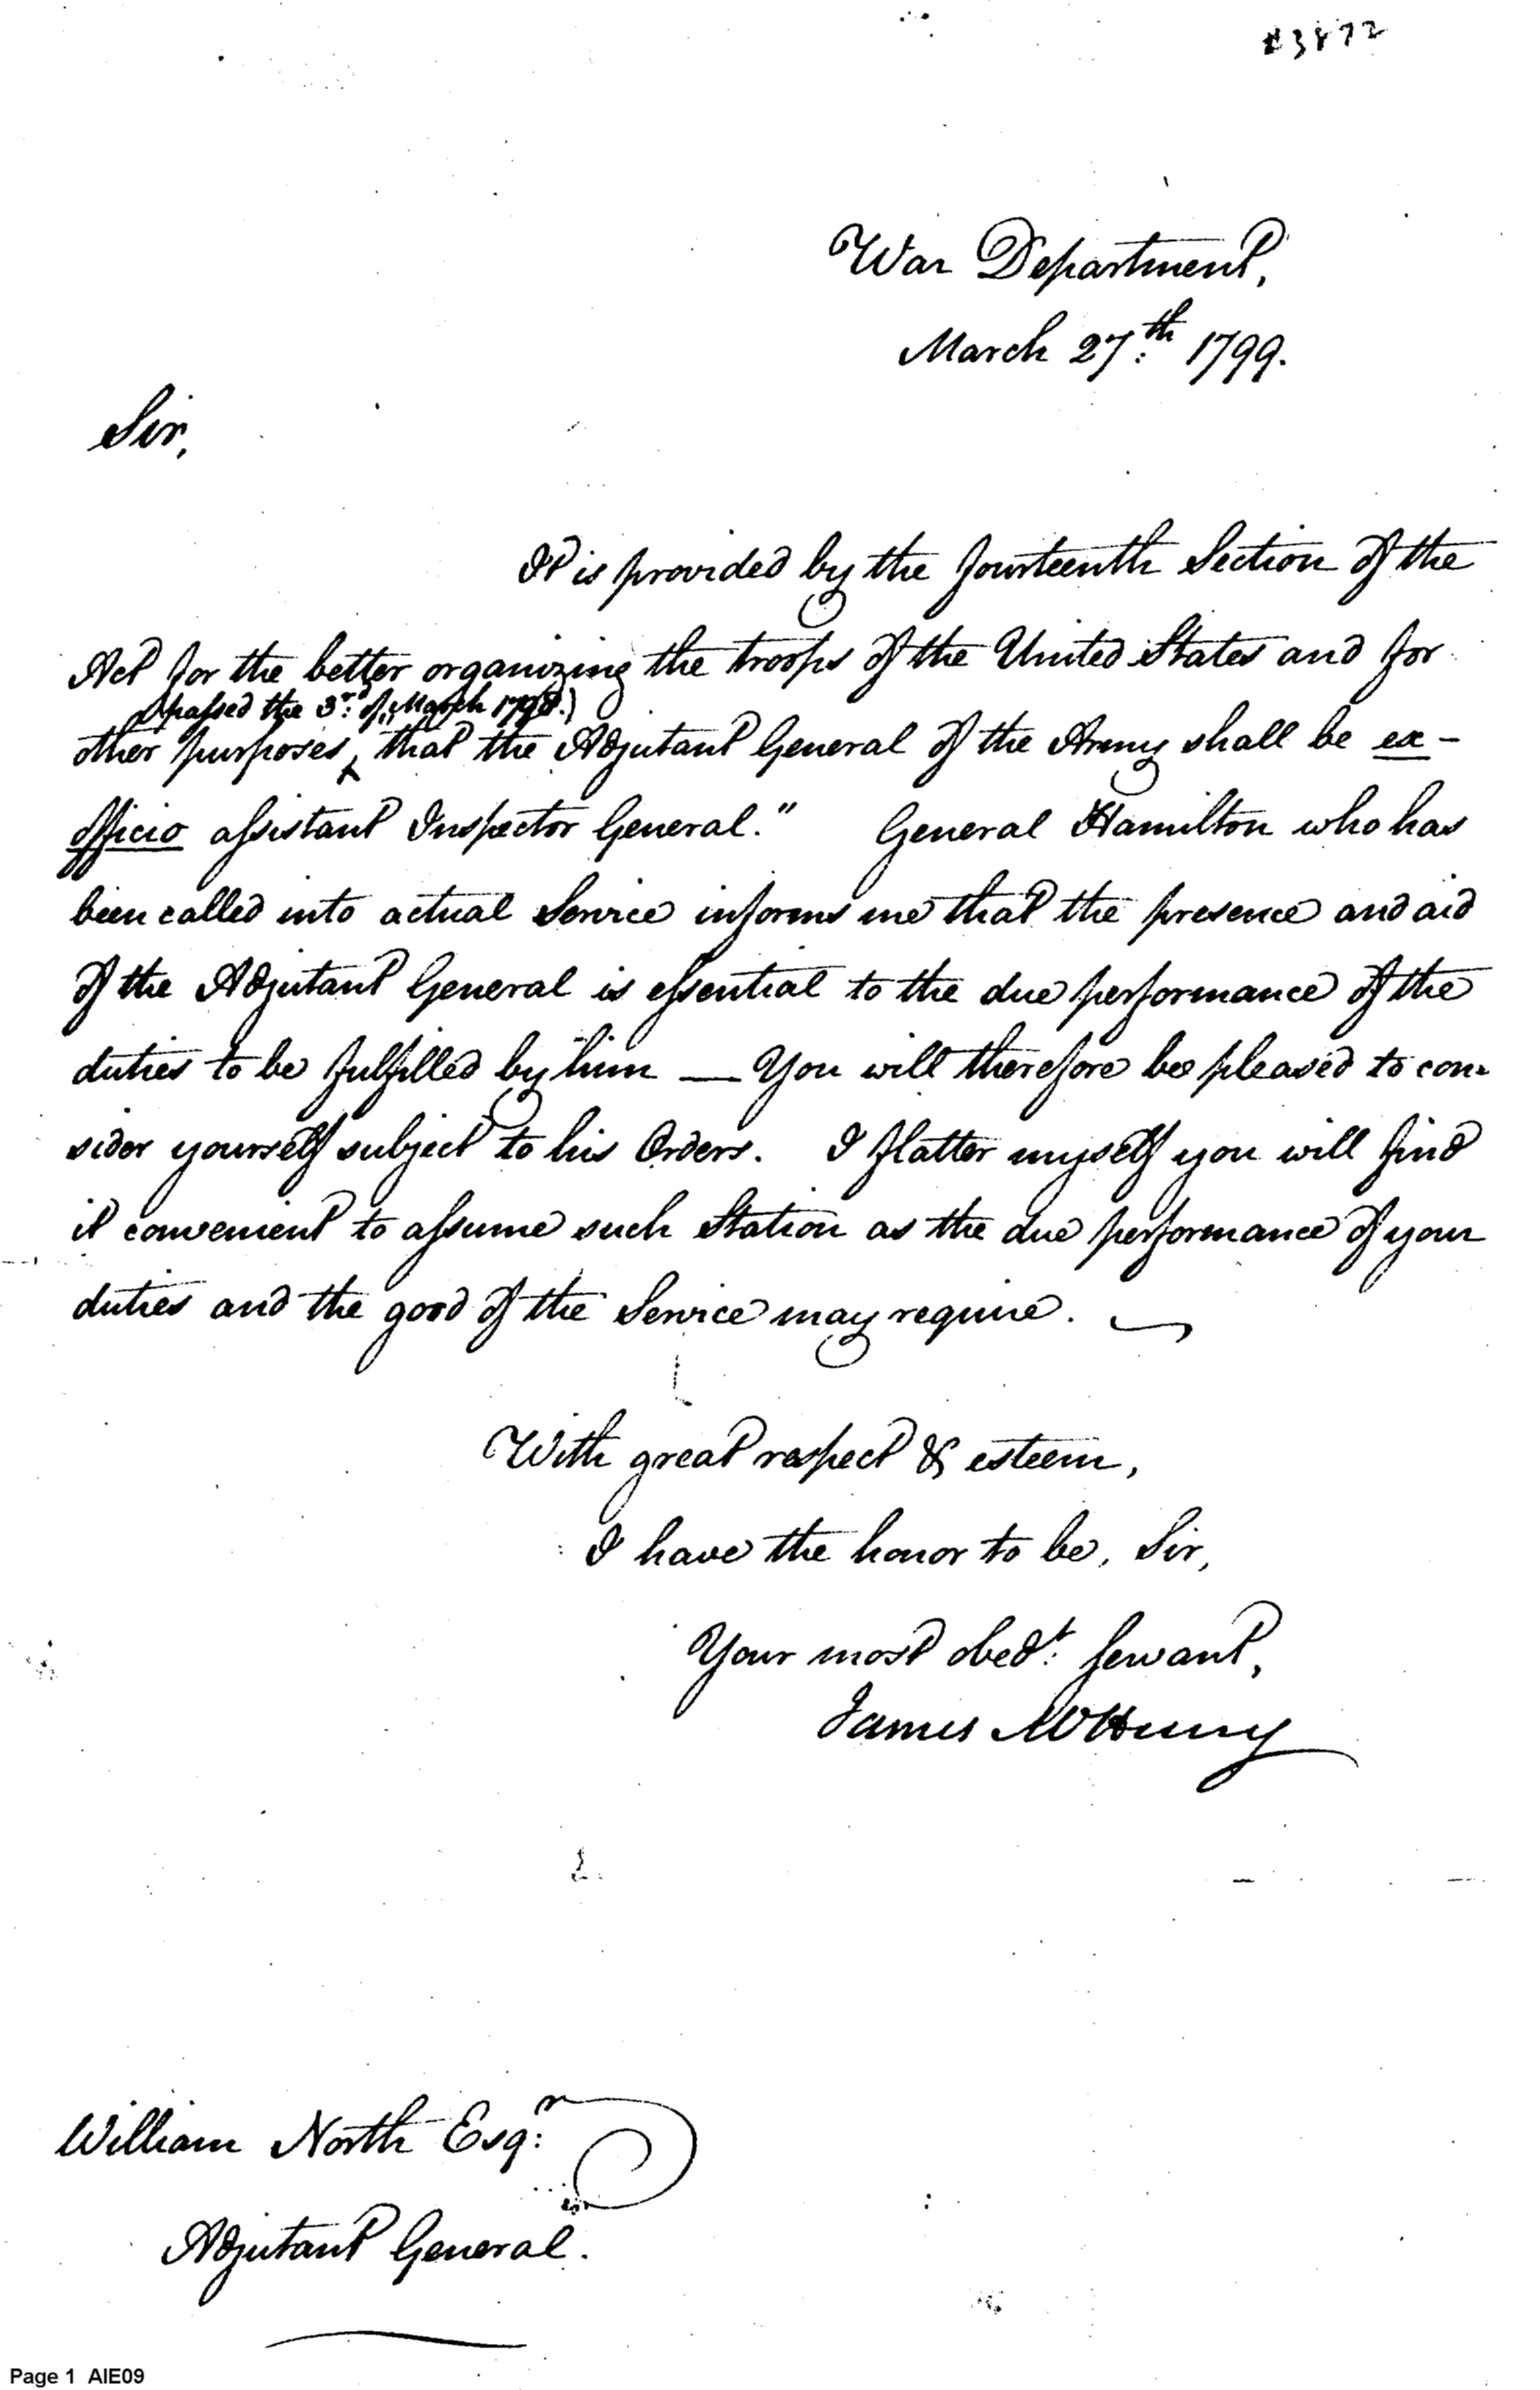 #3872
War Department,
March 27:th 1799.
Sir,
It is provided by the fourteenth Section of the
Act for the better organizing the troops of the United States and for
(passed the 3:rd of March 1799.)
other purposes, that the Adjutant General of the Army shall be ex-
officio assistant Inspector General." General Hamilton who has
been called into actual Service informs me that the presence and aid
of the Adjutant General is essential to the due performance of the
duties to be fulfilled by him — You will therefore be pleased to con-
sider yourself subject to his Orders. I flatter myself you will find
it convenient to assume such Station as the due performance of your
duties and the good of the Service may require.
With great respect & esteem,
I have the honor to be, Sir,
Your most obed:t Servant,
James McHenry
William North Esq:r
Adjutant General.
Page 1 AIE09